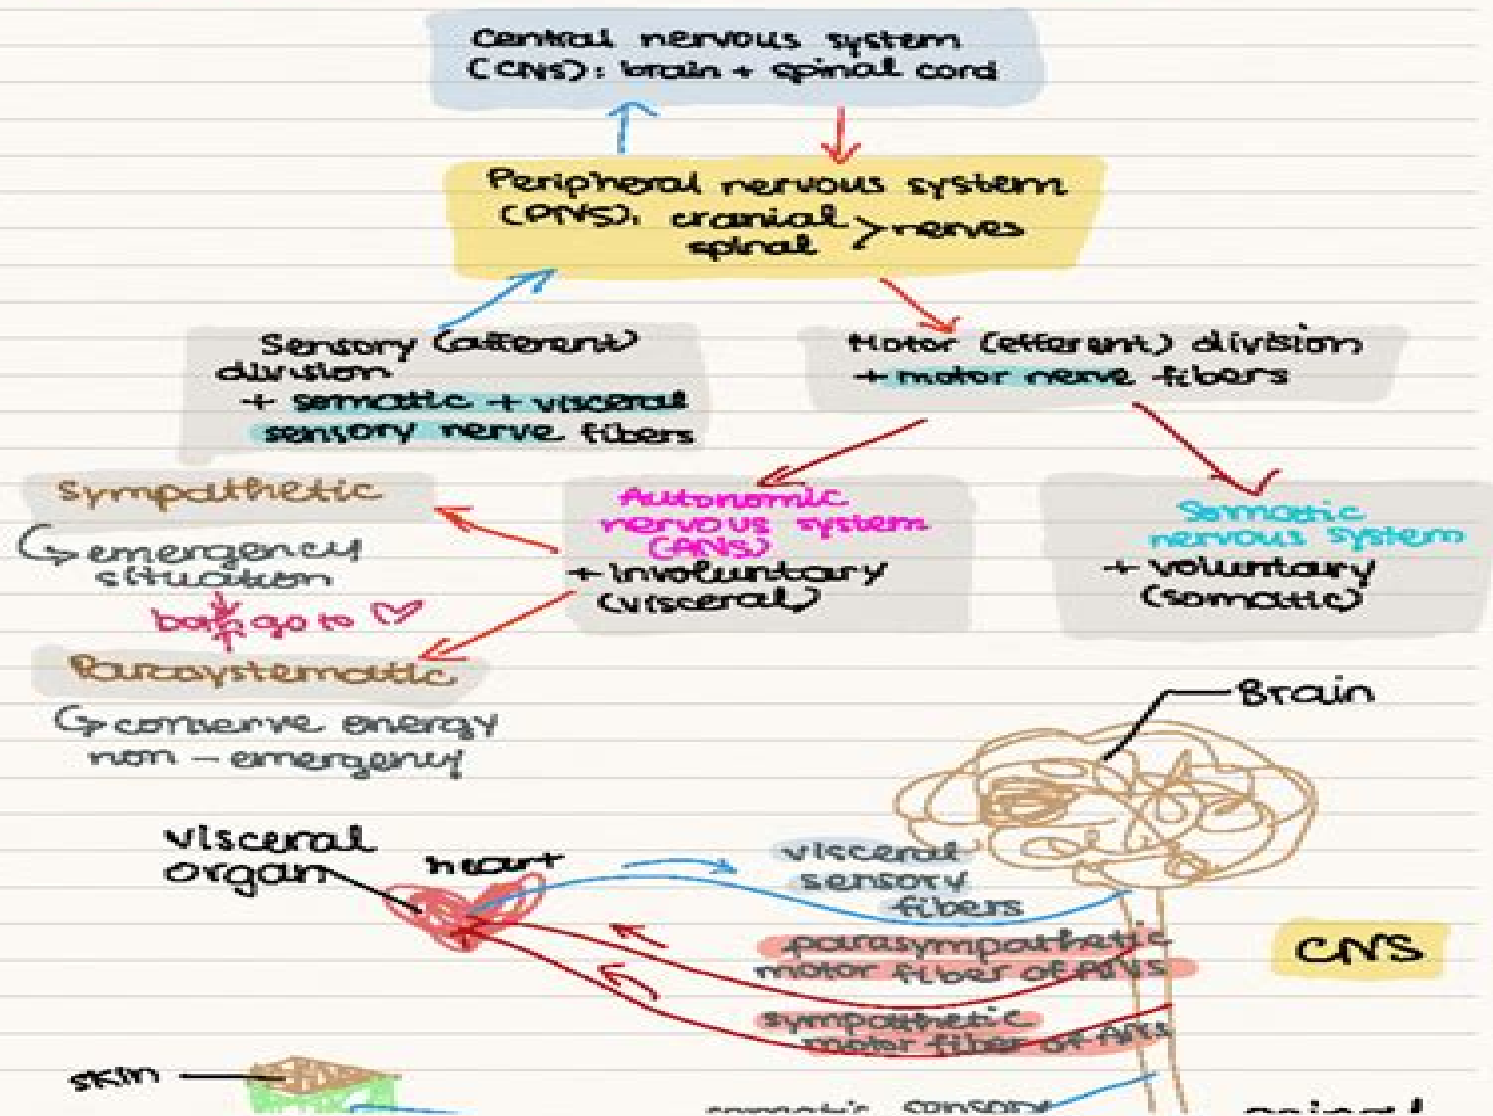 Central nervous system
(CNS): brain + spinal cord
Peripheral nervous system
(PNS): cranial > nerves
spinal
Sensory (afferent)
division
+ somatic + visceral
sensory nerve fibers
Motor (efferent) division
+ motor nerve fibers
Sympathetic
↳ emergency
situation
both go to ♡
Parasystematic
↳ conserve energy
non - emergency
Autonomic
nervous system
(ANS)
+ involuntary
(visceral)
Somatic
nervous system
+ voluntary
(somatic)
Brain
visceral
organ
heart
visceral
sensory
fibers
parasympathetic
motor fiber of ANS
sympathetic
motor fiber of ANS
CNS
skin
somatic sensory